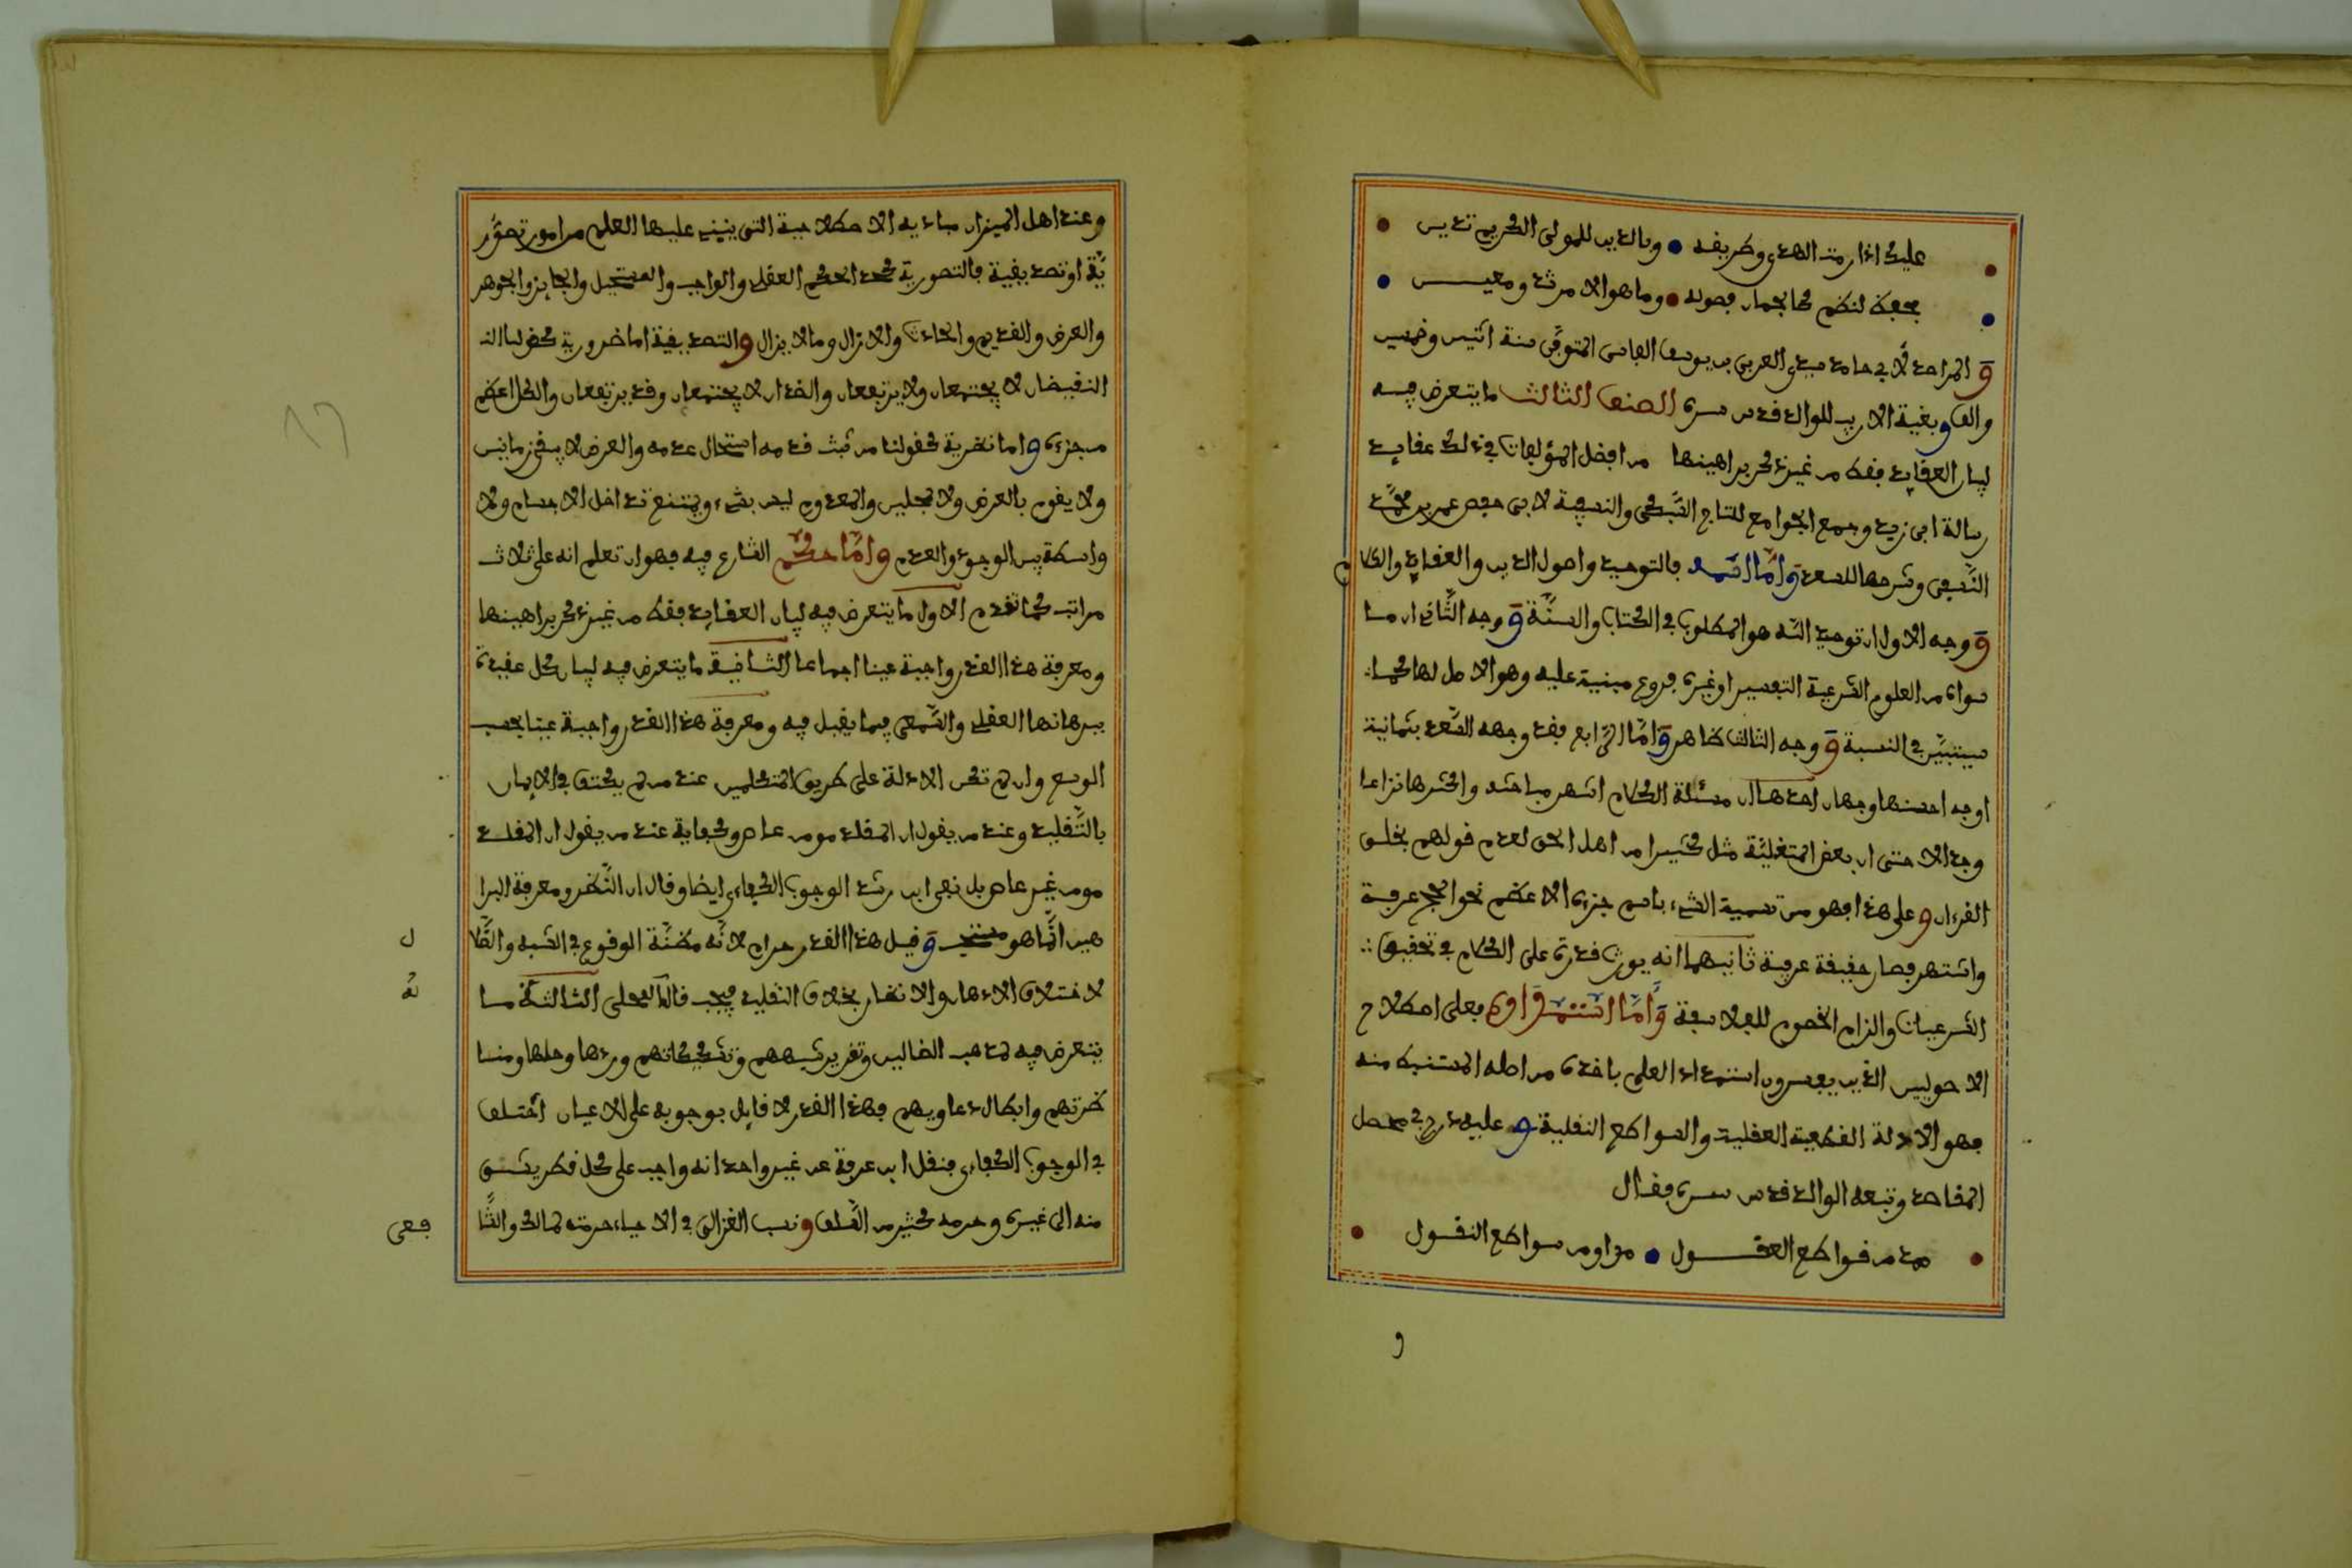 عليك اذا رمت الهدى وطريقه • وبالدين للمولى الكريم تدين
بحفظ لنظم كالجمان فصوله • وما هو الا مرشد ومعين
و المراصد لابى حامد سيدى العربى بن يوسف الفاسى المتوفى سنة اثنين وخمسين
والف وبغية الاريب للوالد قدس سره الصنف الثالث ما يتعرض فيه
لبيان العقايد فقط من غير ذكر براهينها من افضل المؤلفات فى ذلك عقايد
رسالة ابى زيد وجمع الجوامع للتاج السبكى والنسفية لابى حفص عمر بن محمد
النسفى وشرحها للسعد واما اسمه فالتوحيد واصول الدين والعقايد والكلام
و وجه الاول ان توحيد الله هو المطلوب فى الكتاب والسنة و وجه الثانى ان ما
سواه من العلوم الشرعية التفسير او غيره فروع مبنية عليه وهو الاصل لها كما
سيتبين فى النسبة و وجه الثالث ظاهر واما الرابع فقد وجهه السعد بثمانية
اوجه احسنها وجهان احدهما ان مسئلة الكلام اشهر مباحثه واكثرها نزاعا
وجدالا حتى ان بعض المتغلبة مثل كثيرا من اهل الحق لعدم قولهم بخلق
القرءان و على هذا فهو من تسمية الشىء باسم جزءه الاعظم نحو الحج عرفة
واشتهر فصار حقيقة عرفية ثانيهما انه يورث قدرة على الكلام فى تحقيق
الشرعيات والزام الخصوم للفلاسفة واما استمداده فعلى اصطلاح
الاصوليين الذين يفسرون استمداد العلم باخذه من اصله المستنبط منه
فهو الادلة القطعية العقلية والسواطع النقلية و عليه درج فى محصل
المقاصد وتبعه الوالد قدس سره فقال
مدد من قواطع العقول • مداومن سواطع النقول
و
وعند اهل الميزان مباديه الاصطلاحية التى ينبنى عليها العلم من امور تصور
ية او تصديقية فالتصورية كحد الحكم العقلى والواجب والمستحيل والجايز والجوهر
والعرض والقديم والحادث والازال وما لا يزال والتصديقية اما ضرورية كقولنا النـ
النقيضان لا يجتمعان ولا يرتفعان والضدان لا يجتمعان وقد يرتفعان والكل اعظم
من جزءه و اما نظرية كقولنا من ثبت قدمه استحال عدمه والعرض لا يبقى زمانين
ولا يقوم بالعرض ولا بمحلين والمعدوم ليس بشىء ويمتنع تداخل الاجسام ولا
واسطة بين الوجود والعدم واما حكم الشارع فيه فهو ان تعلم انه على ثلاث
مراتب كما تقدم الاول ما يتعرض فيه لبيان العقايد فقط من غير ذكر براهينها
ومعرفة هذا القدر واجبة عينا اجماعا الثانية ما يتعرض فيه لبيان كل عقيدة
ببرهانها العقلى والسمعى فيما يقبل فيه ومعرفة هذا القدر واجبة عينا بحسب
الوسع وان لم تكن الادلة على طريق المتكلمين عند من لم يكتف فى الايمان
بالتقليد وعند من يقول ان المقلد مومن عاص وكفاية عند من يقول ان المقلد
مومن غير عاص بل نفى ابن رشد الوجوب الكفاءى ايضا وقال ان النظر ومعرفة البرا
هين انما هو مستحب و قيل هذا القدر حرام لانه مظنة الوقوع فى الشبه والضلا
ل
لاختلاف الاذهان والانظار بخلاف التقليد فيجب قاله المحلى الثالثة ما
لة
يتعرض فيه لمذاهب الضالين وتقرير شبههم وتشكيكاتهم وردها وحلها ومنا
ظرتهم وابطال دعاويهم فهذا القدر لا قايل بوجوبه على الاعيان اختلف
فى الوجوب الكفاءى فنقل ابن عرفة عن غير واحد انه واجب على كل قطر يشق
منه الى غيره وحرمه كثير من السلف ونسب الغزالى فى الاحياء حرمته لمالك والشا
فعى